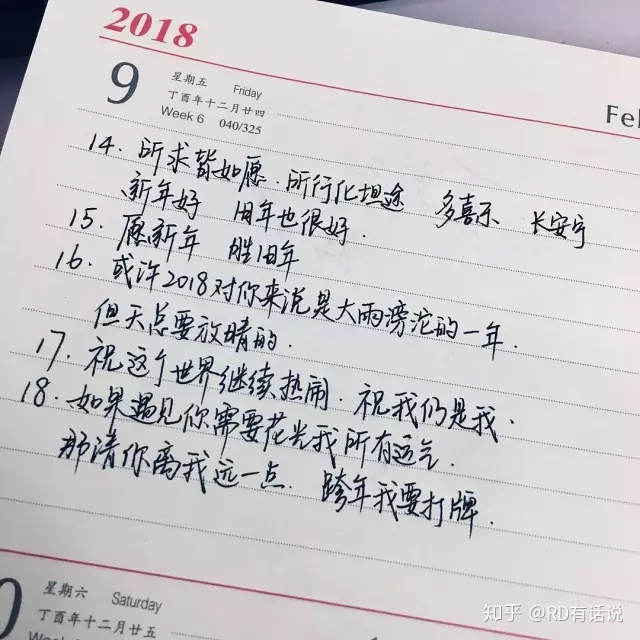 2018
9
星期五 Friday
丁酉年十二月廿四
Week 6 040/325
Fe
14. 所求皆如愿. 所行化坦途 多喜乐 长安宁
新年好 旧年也很好.
15. 愿新年 胜旧年
16. 或许2018对你来说是大雨滂沱的一年.
但天总要放晴的.
17. 祝这个世界继续热闹. 祝我仍是我.
18. 如果遇见你需要花光我所有运气.
那请你离我远一点. 跨年我要打牌.
星期六 Saturday
丁酉年十二月廿五
Week
知乎 @RD有话说